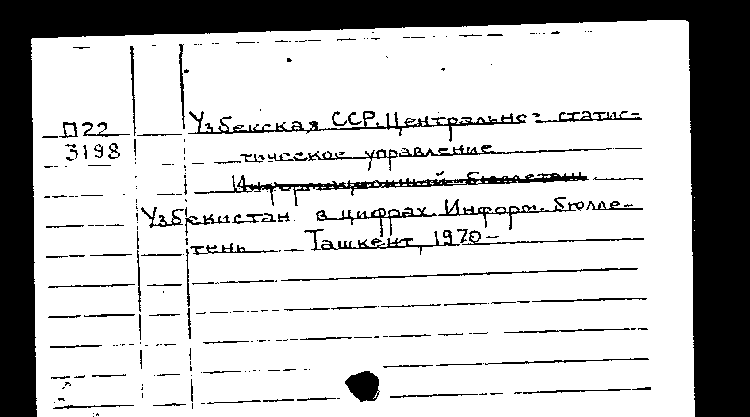 П22
3198
Узбекская ССР. Центральное статис-
тическое управление
Информационный бюллетень
Узбекистан в цифрах. Информ. бюлле-
тень Ташкент, 1970-